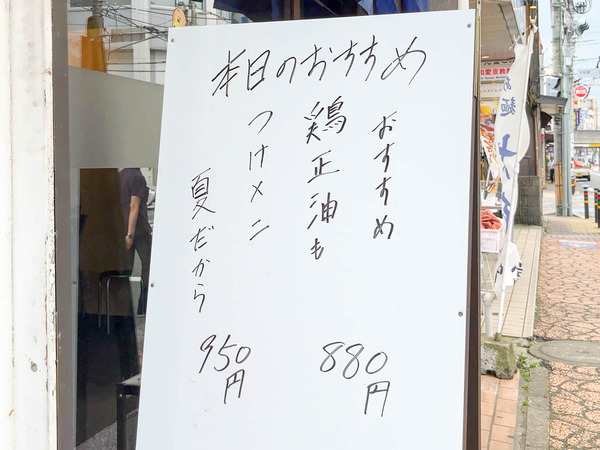 本日のおすすめ
おすすめ
鶏正油も
880円
つけメン
夏だから
950円
麺